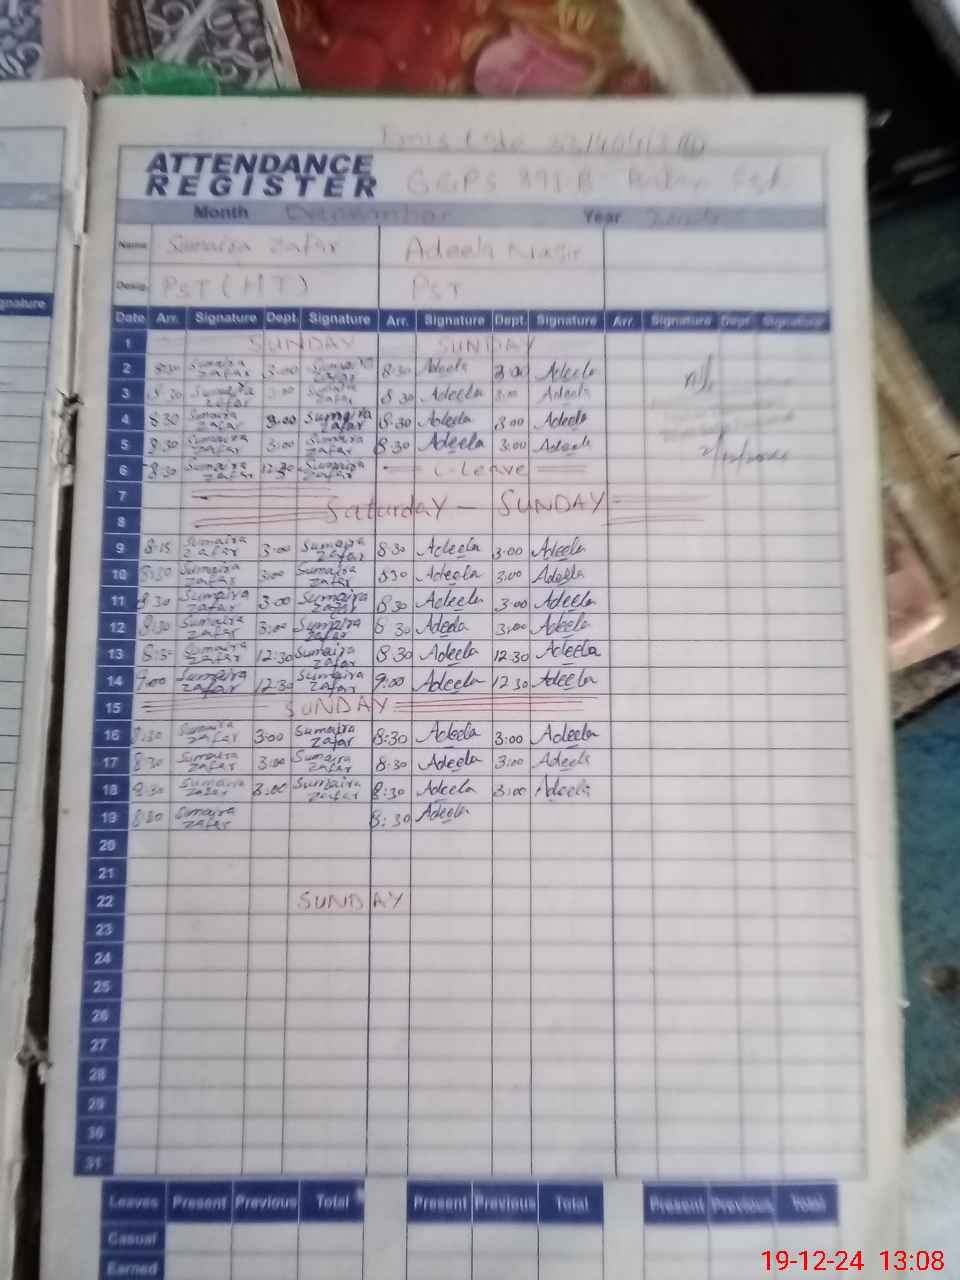 Emis Code
ATTENDANCE
REGISTER
GGPS
Month Year
Name Sumaira Zafar Adeela Nasir
Desig. PST (HT) PST
Date Arr. Signature Dept. Signature Arr. Signature Dept. Signature Arr. Signature Dept. Signature
1 SUNDAY SUNDAY
2 8:30 Sumaira Zafar 3:00 Sumaira Zafar 8:30 Adeela 3:00 Adeela
3 8:30 Sumaira Zafar 3:00 Sumaira Zafar 8:30 Adeela 3:00 Adeela
4 8:30 Sumaira Zafar 3:00 Sumaira Zafar 8:30 Adeela 3:00 Adeela
5 8:30 Sumaira Zafar 3:00 Sumaira Zafar 8:30 Adeela 3:00 Adeela
6 8:30 Sumaira Zafar 12:30 Sumaira Zafar C-Leave
7 Saturday - SUNDAY
8
9 8:15 Sumaira Zafar 3:00 Sumaira Zafar 8:30 Adeela 3:00 Adeela
10 8:30 Sumaira Zafar 3:00 Sumaira Zafar 830 Adeela 3:00 Adeela
11 8:30 Sumaira Zafar 3:00 Sumaira Zafar 8:30 Adeela 3:00 Adeela
12 8:30 Sumaira Zafar 3:00 Sumaira Zafar 8:30 Adeela 3:00 Adeela
13 8:30 Sumaira Zafar 12:30 Sumaira Zafar 8:30 Adeela 12:30 Adeela
14 9:00 Sumaira Zafar 12:30 Sumaira Zafar 9:00 Adeela 12:30 Adeela
15 SUNDAY
16 8:30 Sumaira Zafar 3:00 Sumaira Zafar 8:30 Adeela 3:00 Adeela
17 8:30 Sumaira Zafar 3:00 Sumaira Zafar 8:30 Adeela 3:00 Adeela
18 8:30 Sumaira Zafar 3:00 Sumaira Zafar 8:30 Adeela 3:00 Adeela
19 8:30 Sumaira Zafar 8:30 Adeela
20
21
22 SUNDAY
23
24
25
26
27
28
29
30
31
Leaves Present Previous Total Present Previous Total Present Previous Total
Casual
Earned
19-12-24 13:08